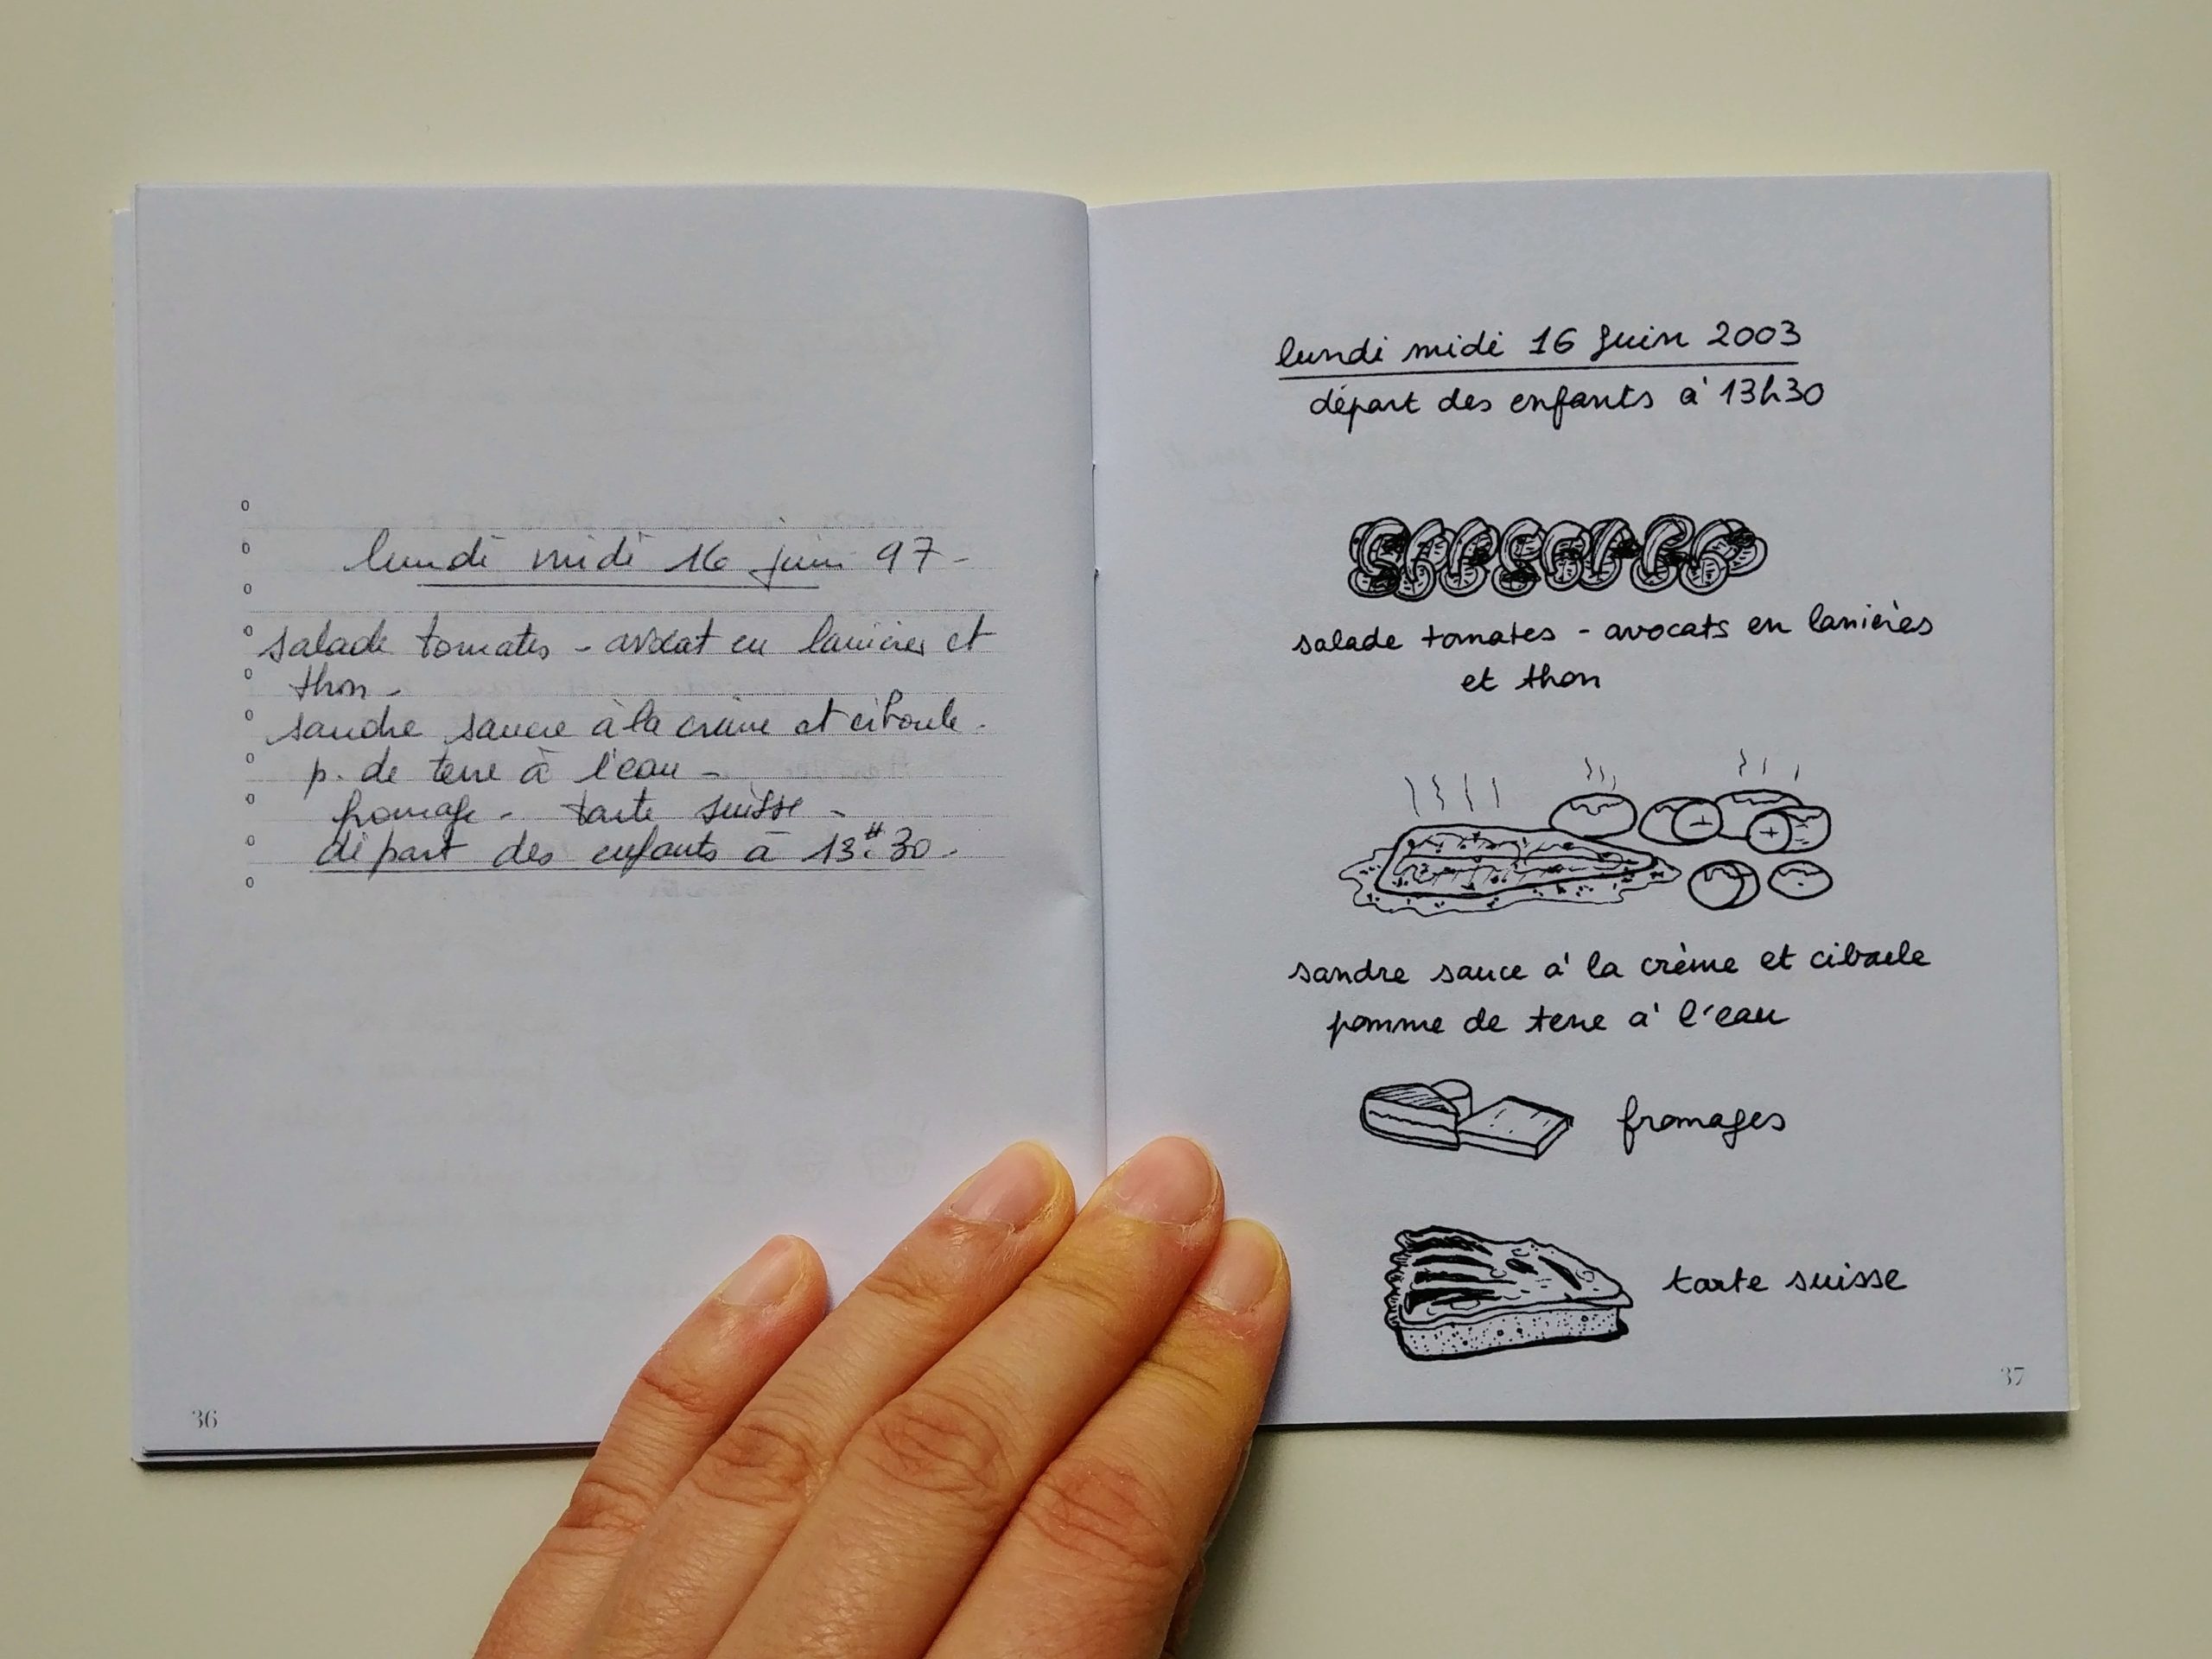 lundi midi 16 juin 97 -
salade tomates - avocat en lanières et
thon -
sandre sauce à la crème et ciboule -
p. de terre à l'eau -
fromage - tarte suisse -
départ des enfants à 13H30 -
36
lundi midi 16 juin 2003
départ des enfants à 13h30
salade tomates - avocats en lanières
et thon
sandre sauce à la crème et ciboule
pomme de terre à l'eau
fromages
tarte suisse
37